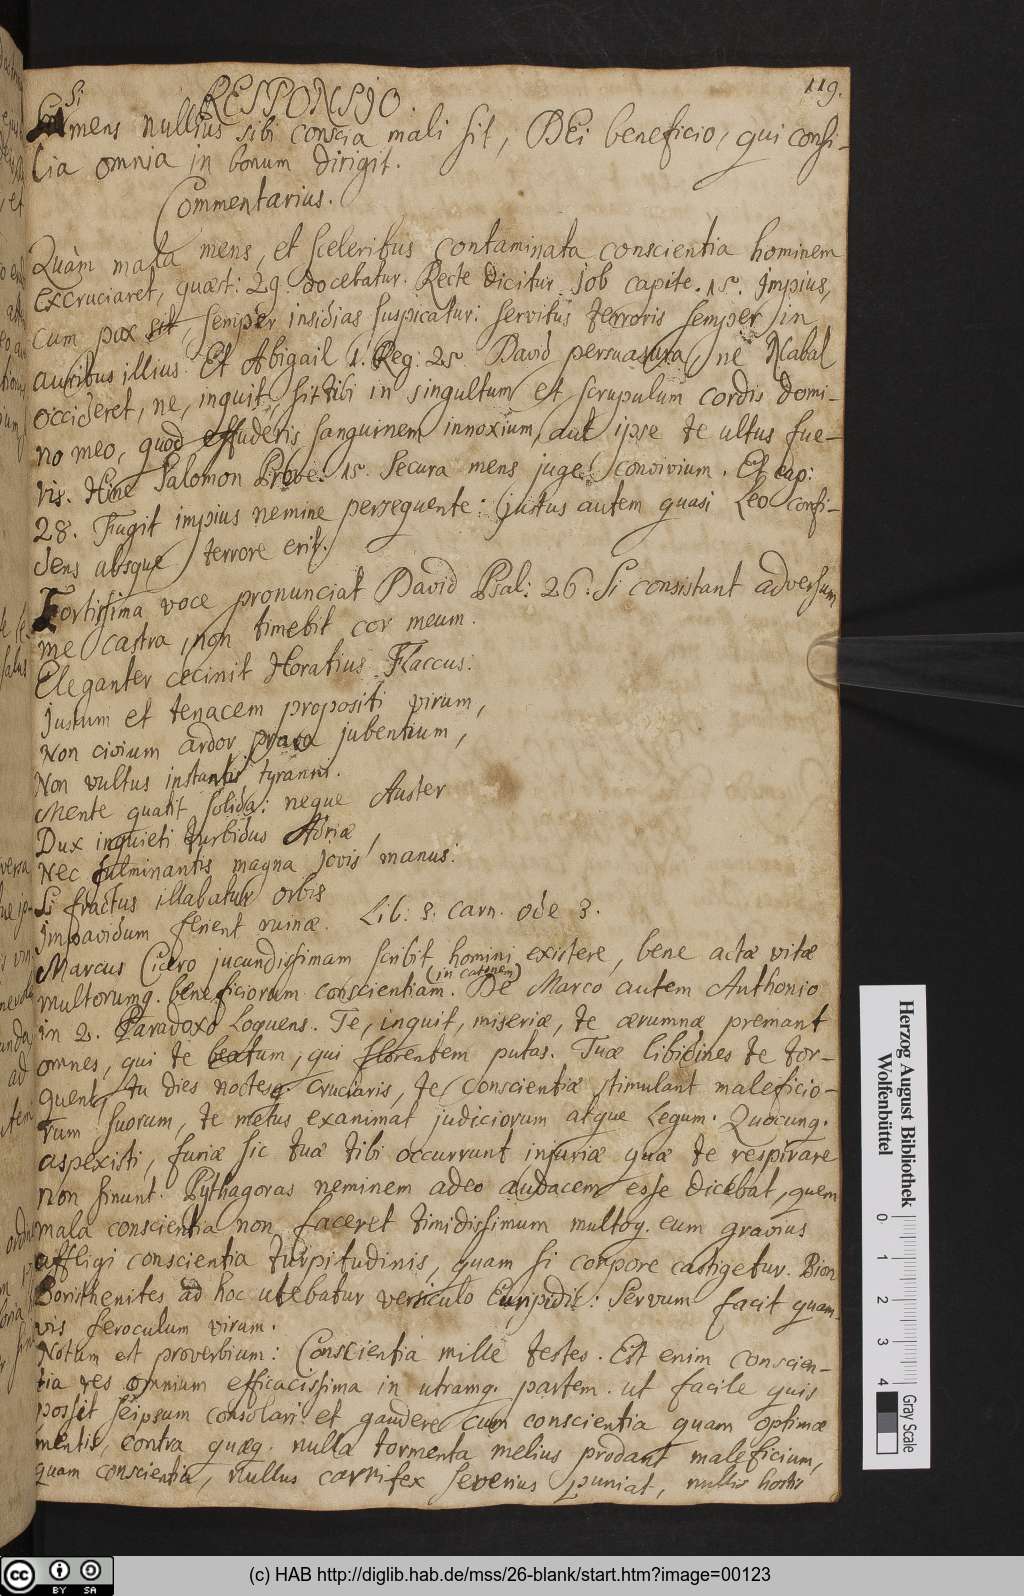 119.
RESPONSIO.
Si mens nullius sibi conscia mali sit, DEi beneficio, qui consi-
lia omnia in bonum dirigit.
Commentarius.
Quàm mala mens et sceleribus contaminata conscientia hominem
excruciaret, quæst: 29. docebatur. Recte dicitur Job capite. 15. Impius,
cum pax sit, semper insidias suspicatur: servitus terroris semper in
auribus illius. Et Abigail 1. Reg: 25 David persuasura, ne Nabal
occideret, ne, inquit, sit tibi in singultum et scrupulum cordis domi-
no meo, quod effuderis sanguinem innoxium, aut ipse te ultus fue-
ris. Hinc Salomon Prove: 15. Secura mens juge convivium. Et cap:
28. Fugit impius nemine persequente: justus autem quasi Leo confi-
dens absque terrore erit.
Fortissima voce pronunciat David Psal: 26. Si consistant adversum
me castra, non timebit cor meum.
Eleganter cecinit Horatius Flaccus:
Justum et tenacem propositi virum,
Non civium ardor prava jubentium,
Non vultus instantis tyranni.
Mente quatit solida: neque Auster
Dux inquieti turbidus Adriæ,
Nec fulminantis magna Jovis manus:
Si fractus illabatur orbis
Impavidum ferient ruinæ. Lib: 3. carn. ode 3.
Marcus Cicero jucundissimam scribit homini existere, bene actæ vitæ
multorumq. beneficiorum conscientiam. (in catone) De Marco autem Anthonio
in 2. Paradoxo loquens. Te, inquit, miseriæ, te ærumnæ premant
omnes, qui te beatum, qui florentem putas. Tuæ libidines te tor-
quent, tu dies noctesq. cruciaris, te conscientiæ stimulant maleficio-
rum suorum, te metus exanimat judiciorum atque Legum. Quocunq.
aspexisti, furiæ sic tuæ tibi occurrunt injuriæ quæ te respirare
non sinunt. Pythagoras neminem adeo audacem esse dicebat, quem
mala conscientia non faceret timidissimum multoq. eum gravius
affligi conscientia turpitudinis, quam si corpore castigetur. Bion
Borithenites ad hoc utebatur versiculo Euripidis: Servum facit quam-
vis feroculum virum.
Notum est proverbium: Conscientia mille testes. Est enim conscien-
tia res omnium efficacissima in utramq. partem. ut facile quis
possit seipsum consolari et gaudere cum conscientia quam optimæ
mentis, contra quæq. nulla tormenta melius prodant maleficium,
quam conscientia, nullus carnifex severius puniat, nullis hostis
Herzog August Bibliothek
Wolfenbüttel
0 1 2 3 4
Gray Scale
cc BY SA
(c) HAB http://diglib.hab.de/mss/26-blank/start.htm?image=00123